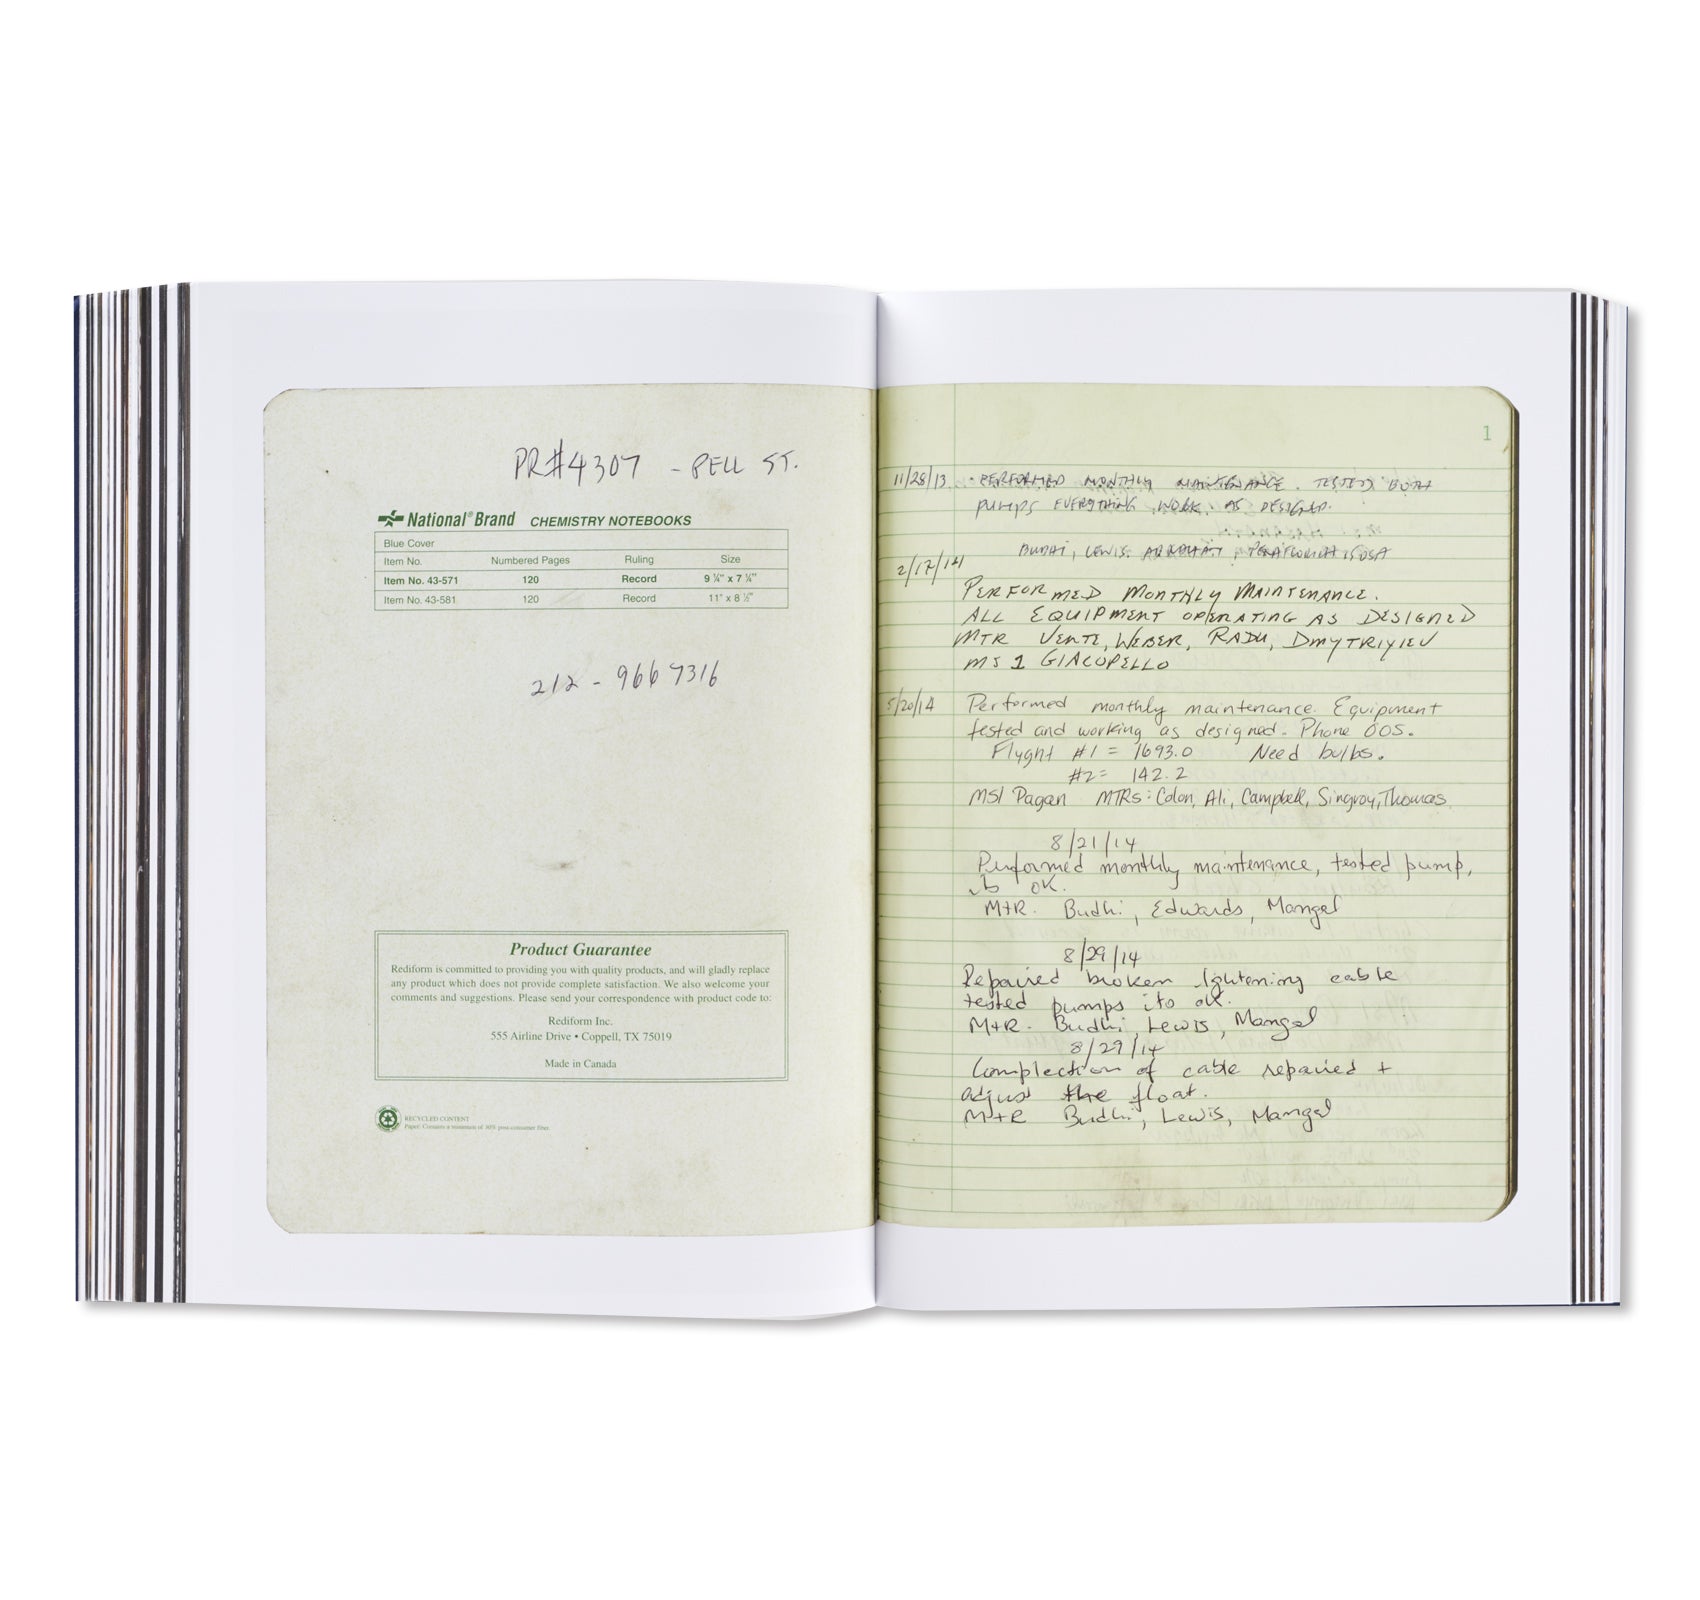 PR#4307 - PELL ST.
National® Brand CHEMISTRY NOTEBOOKS
Blue Cover
Item No. Numbered Pages Ruling Size
Item No. 43-571 120 Record 9 ¼" x 7 ¼"
Item No. 43-581 120 Record 11" x 8 ½"
212 - 966 7316
Product Guarantee
Rediform is committed to providing you with quality products, and will gladly replace
any product which does not provide complete satisfaction. We also welcome your
comments and suggestions. Please send your correspondence with product code to:
Rediform Inc.
555 Airline Drive • Coppell, TX 75019
Made in Canada
RECYCLED CONTENT
Paper: Contains a minimum of 30% post-consumer fiber.
1
11/28/13 - PERFORMED MONTHLY MAINTENANCE. TESTED BOTH
PUMPS EVERYTHING WORK AS DESIGNED.
BUDHI, LEWIS.
2/17/14
PERFORMED MONTHLY MAINTENANCE.
ALL EQUIPMENT OPERATING AS DESIGNED
MTR VENTE, WEBER, RADU, DMYTRIYIEV
MS 1 GIACOPELLO
5/20/14 Performed monthly maintenance. Equipment
tested and working as designed. Phone OOS.
Flyght #1 = 1693.0 Need bulbs.
#2= 142.2
MS1 Pagan MTRs: Colon, Ali, Campbell, Singroy, Thomas
8/21/14
Performed monthly maintenance, tested pump,
OK.
MtR. Budhi, Edwards, Mangal
8/29/14
Repaired broken lightening cable
tested pumps its ok.
MtR. Budhi, Lewis, Mangal
8/29/14
Complection of cable repaired +
adjust the float.
MtR Budhi, Lewis, Mangal